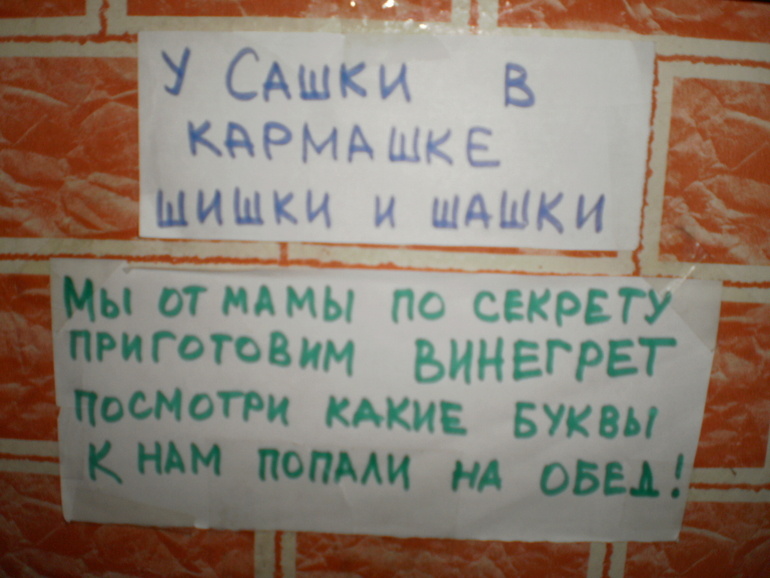 У САШКИ В
КАРМАШКЕ
ШИШКИ И ШАШКИ
МЫ ОТ МАМЫ ПО СЕКРЕТУ
ПРИГОТОВИМ ВИНЕГРЕТ
ПОСМОТРИ КАКИЕ БУКВЫ
К НАМ ПОПАЛИ НА ОБЕД!